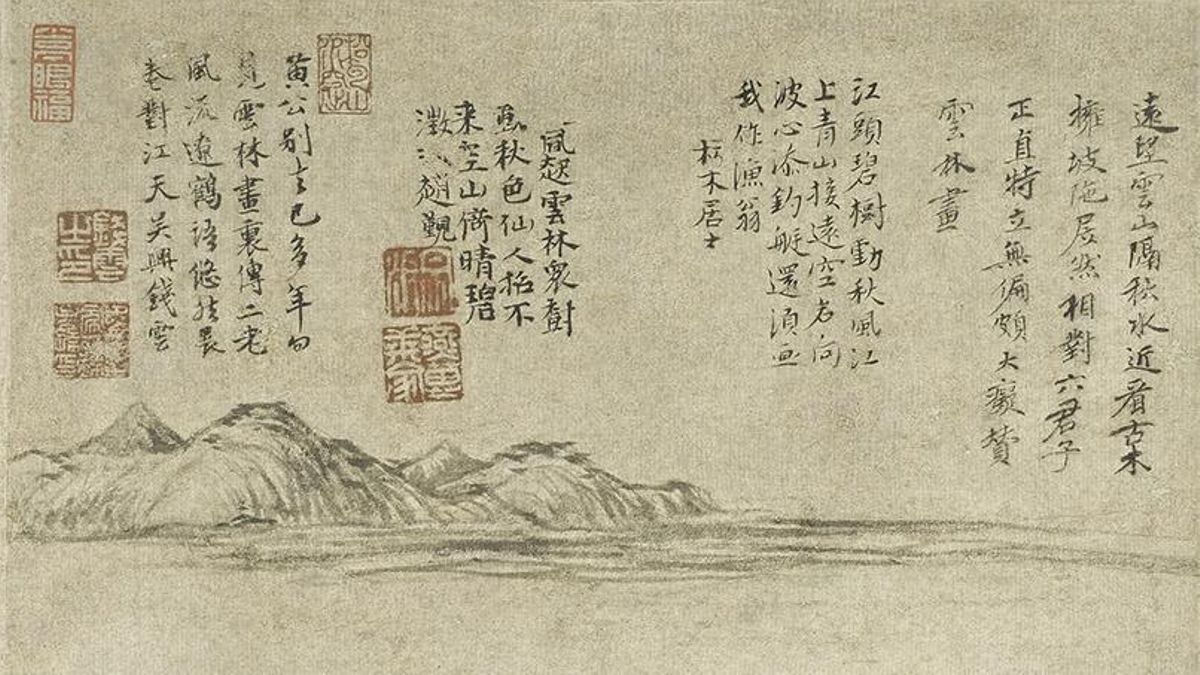 遠望雲山隔秋水近看古木
擁坡陁居然相對六君子
正直特立無偏頗大癡贊
雲林畫
江頭碧樹動秋風江
上青山接遠空若向
波心添釣艇還須畫
我作漁翁
木居士
風起雲林衆樹
秋色仙人招不
來空山倚晴碧
澂江趙覲
黃公別去已多年忽
見雲林畫裏傳二老
風流遼鶴語悠然展
卷對江天吳興錢雲